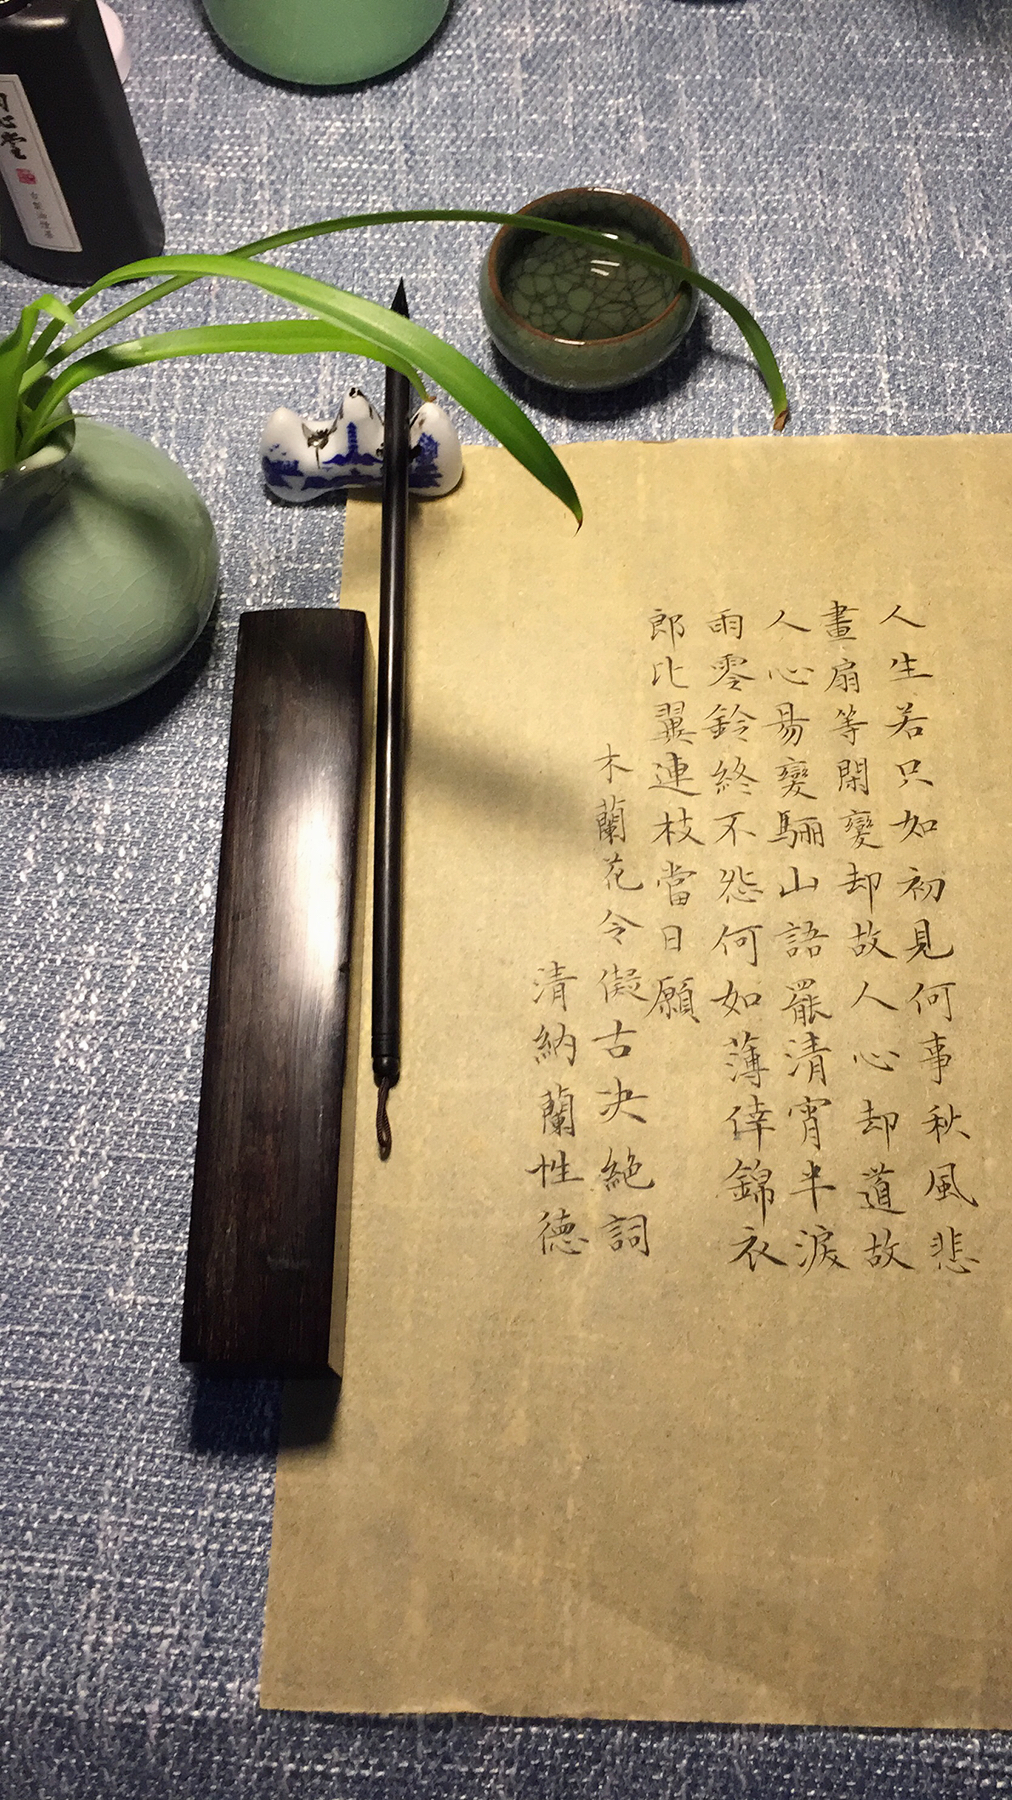 人生若只如初見何事秋風悲
畫扇等閑變却故人心却道故
人心易變驪山語罷清宵半淚
雨零鈴終不怨何如薄倖錦衣
郎比翼連枝當日願
木蘭花令儗古决絶詞
清納蘭性德
心堂